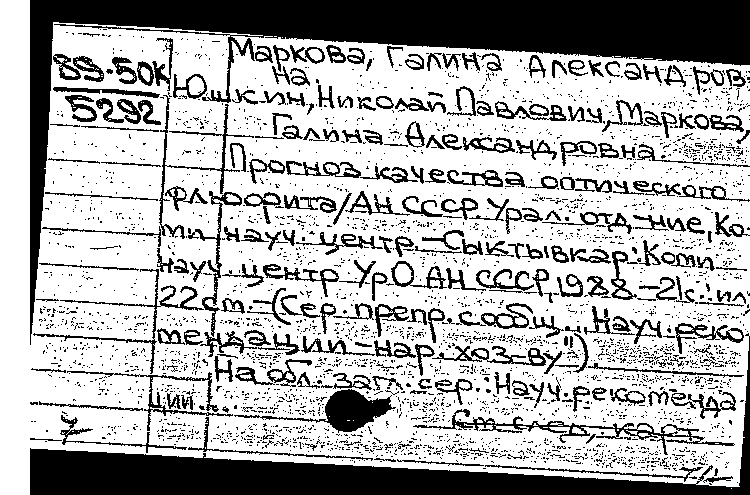 Маркова, Галина Александров-
на.
89-50к
5292
Юшкин, Николай Павлович, Маркова,
Галина Александровна.
Прогноз качества оптического
флюорита/АН СССР. Урал. отд-ние, Ко-
ми науч. центр.-Сыктывкар: Коми
науч. центр УрО АН СССР, 1988.-21с.: ил;
22см.-(Сер. препр. сообщ. „Науч. реко-
мендации-нар. хоз-ву").
На обл. загл. сер.: Науч. рекоменда
ции...
7
См. след. карт.